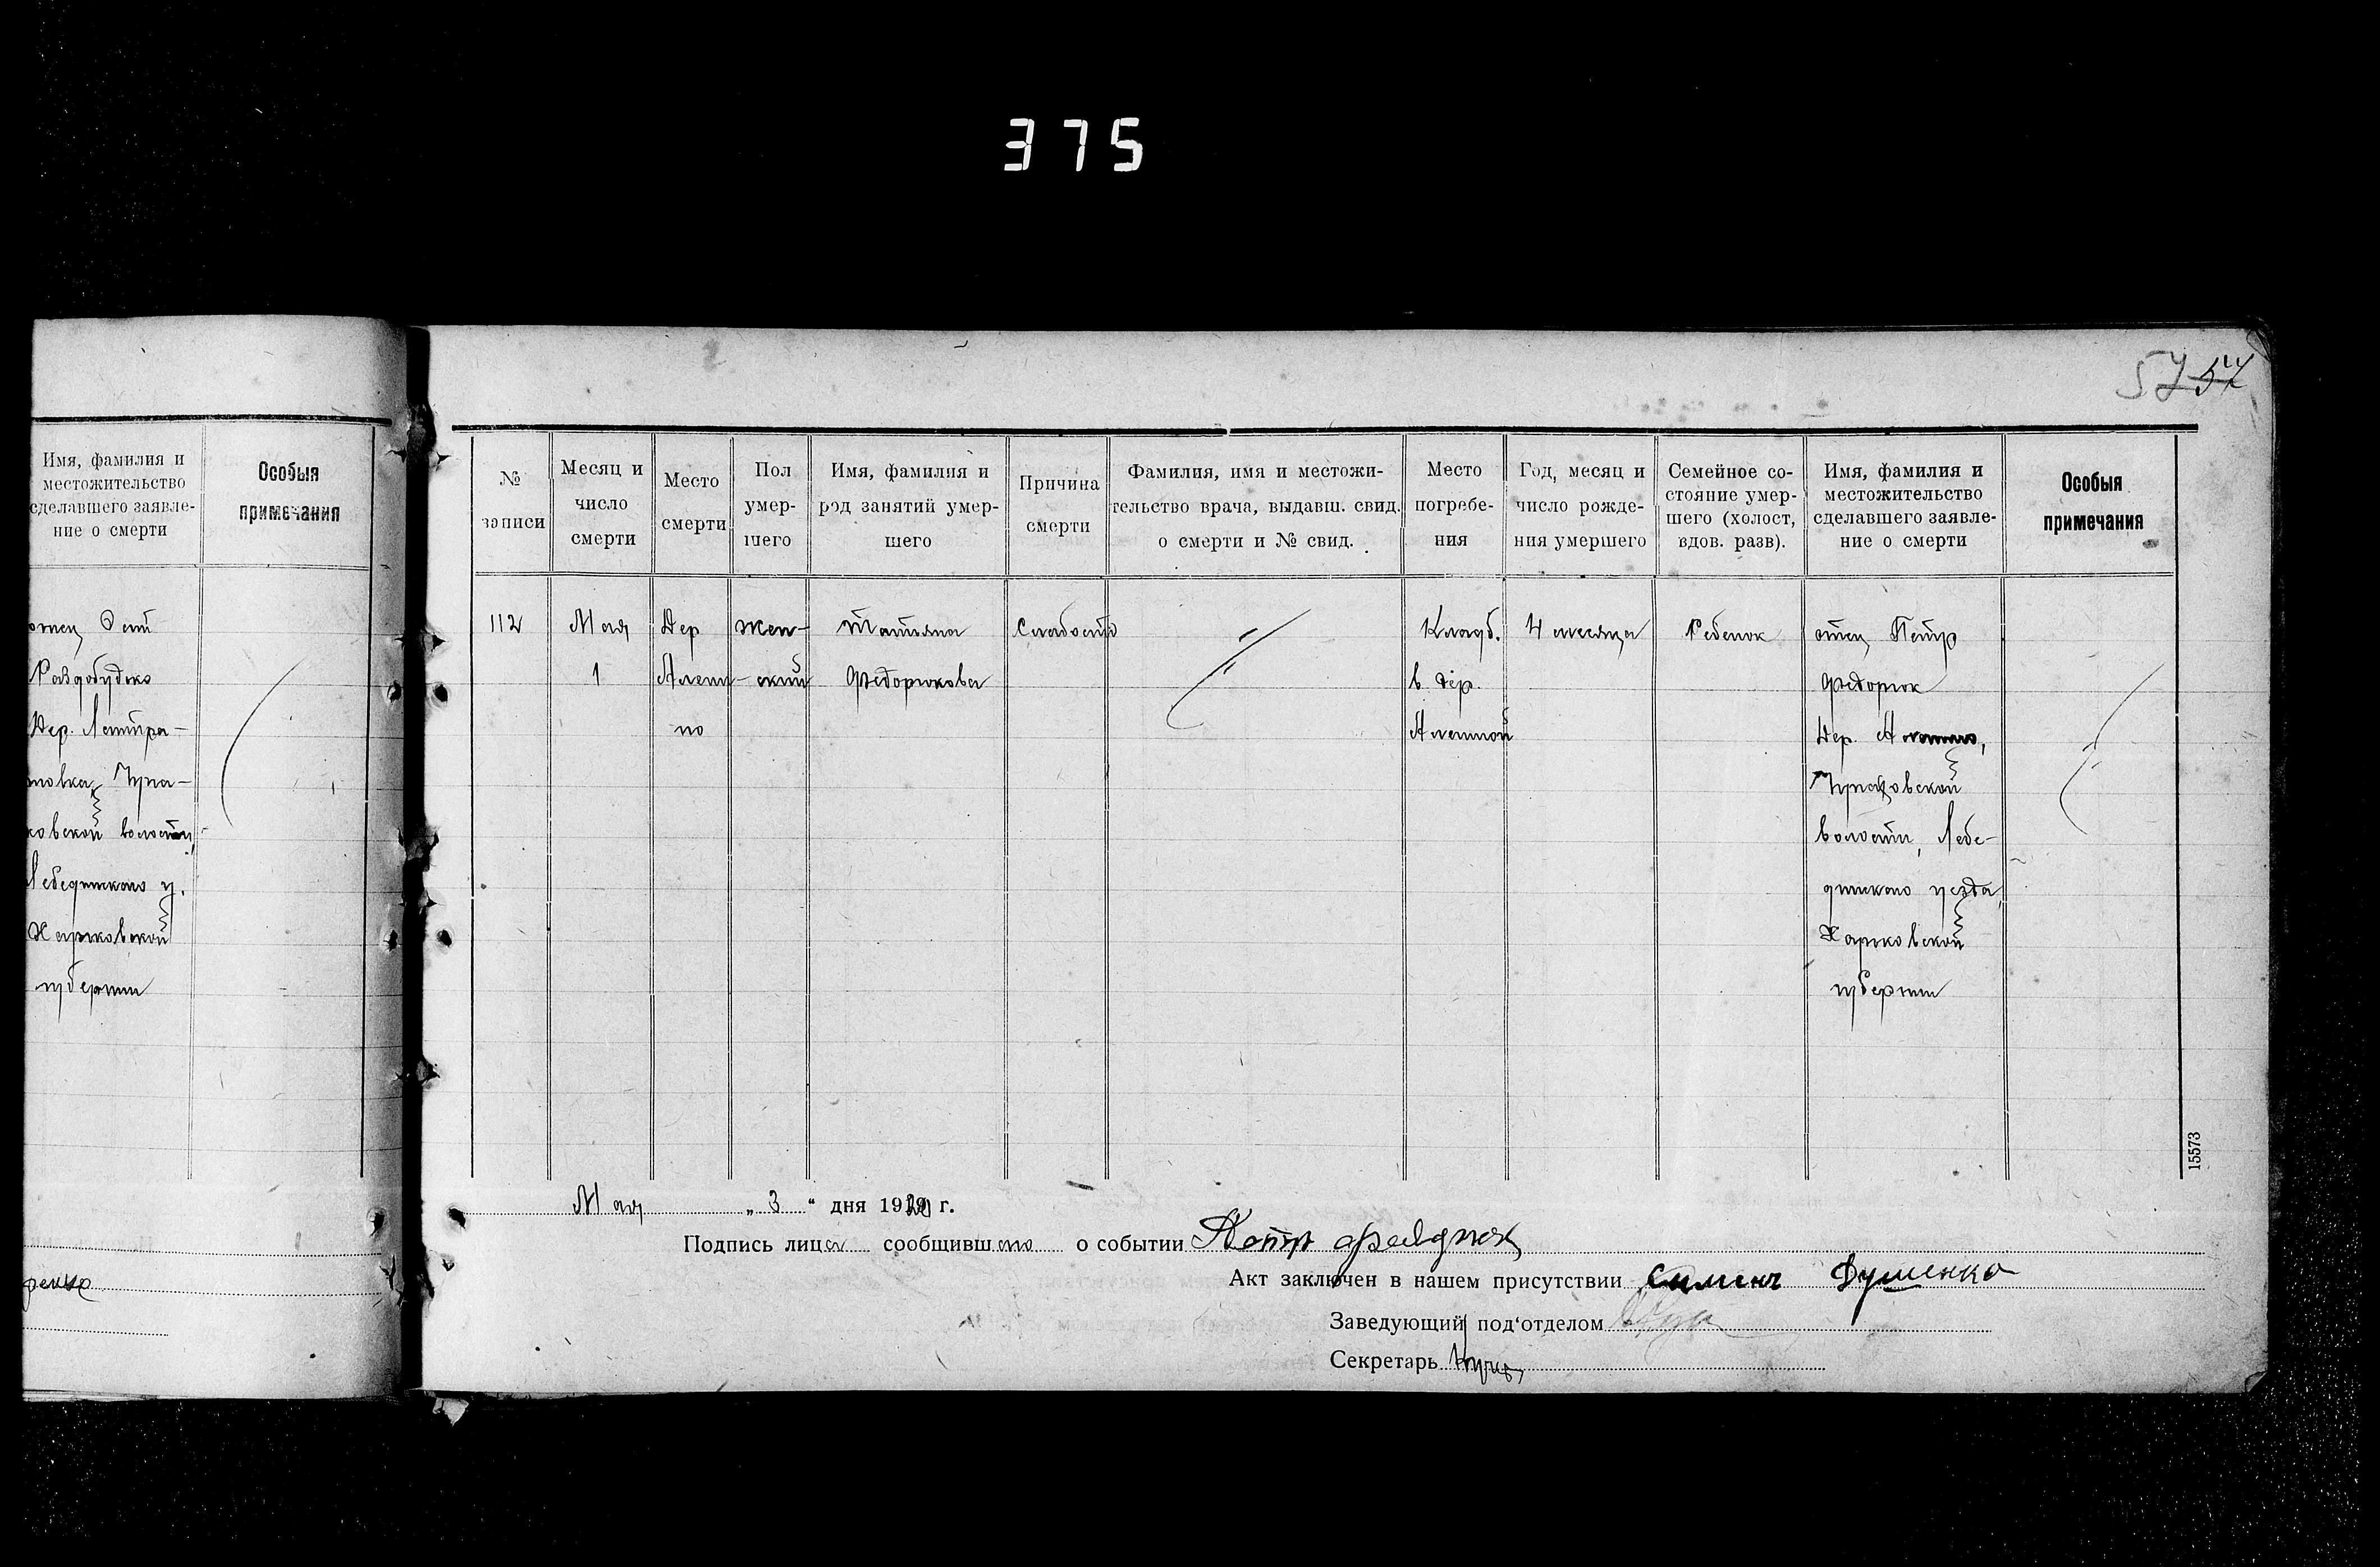 375
57 57
Имя, фамилия и
местожительство
сделавшего заявле-
ние о смерти
Особыя
примечания
отец
Раздобудько
Дер.
ковской волости,
Лебединского у.
Харьковской
губернии
ренко
№
записи
Месяц и
число
смерти
Место
смерти
Пол
умер-
шего
Имя, фамилия и
род занятий умер-
шего
Причина
смерти
Фамилия, имя и местожи-
тельство врача, выдавш. свид.
о смерти и № свид.
Место
погребе-
ния
Год, месяц и
число рожде-
ния умершего
Семейное со-
стояние умер-
шего (холост,
вдов. разв).
Имя, фамилия и
местожительство
сделавшего заявле-
ние о смерти
Особыя
примечания
112
Мая
1
Дер
Алеши-
но
жен-
ский
Татьяна
Федорюкова
Слабость
Кладб.
в дер.
Алешной
4 месяца
Ребенок
отец Петр
Федорюк
Дер.
волости, Лебе-
динского уезда,
Харьковской
губернии
15573
Мая „ 3 “ дня 1920 г.
Подпись лица сообщившаго о событии Петр
Акт заключен в нашем присутствии Симен Душенко
Заведующий под‘отделом
Секретарь